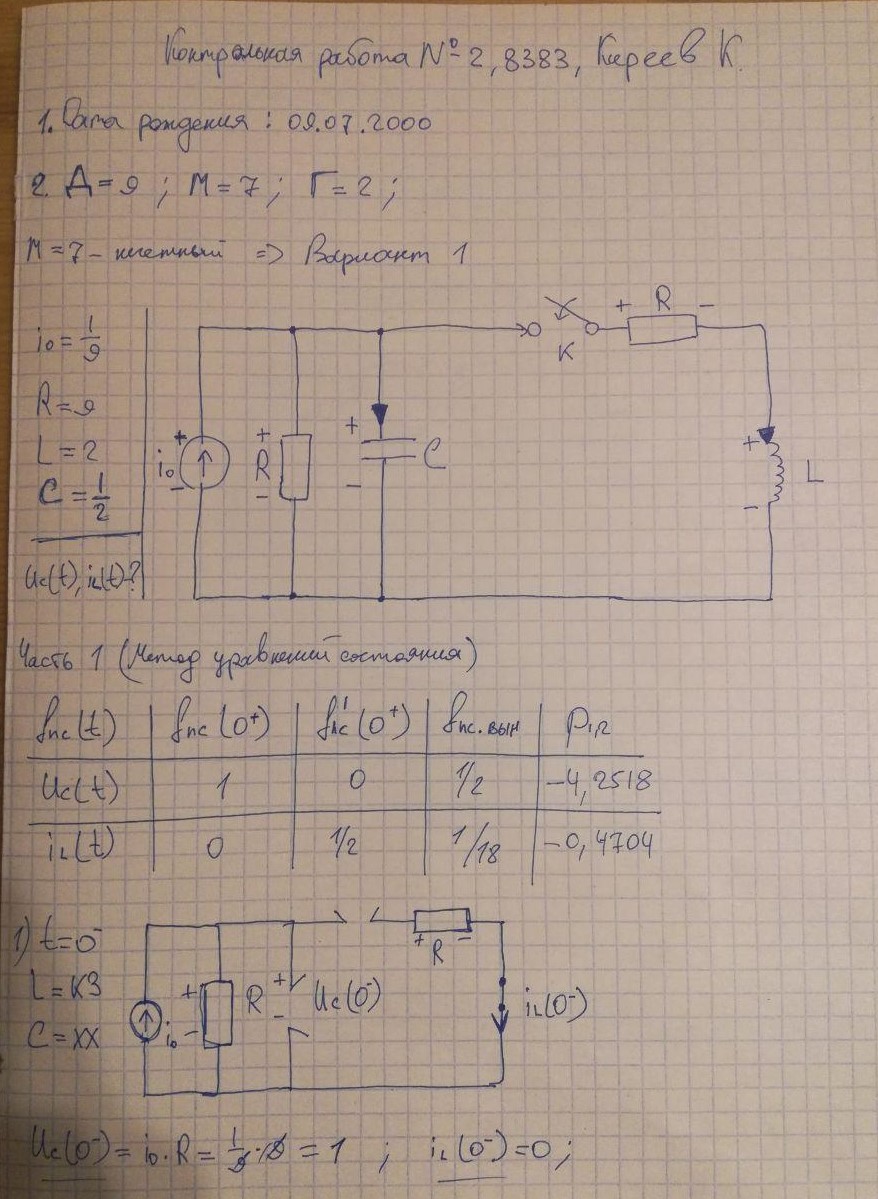 Контрольная работа №2, 8383, Киреев К.
1. Дата рождения: 09.07.2000
2. Д=9; М=7; Г=2;
М=7 – нечетный => Вариант 1
i₀=1/9
R=9
L=2
C=1/2
Uc(t), iL(t)-?
+ R -
K
+
i₀
-
+
R
-
+
C
-
+
L
-
Часть 1 (Метод уравнений состояния)
fпс(t) | fпс(0⁺) | f'пс(0⁺) | fпс.вын | P1,2
Uc(t) | 1 | 0 | 1/2 | -4,2518
iL(t) | 0 | 1/2 | 1/18 | -0,4704
1) t=0⁻
L=КЗ
C=ХХ
i₀
+
-
R
+
-
Uc(0⁻)
+ R -
iL(0⁻)
Uc(0⁻)= i₀·R= 1/9·9 = 1 ; iL(0⁻)=0;